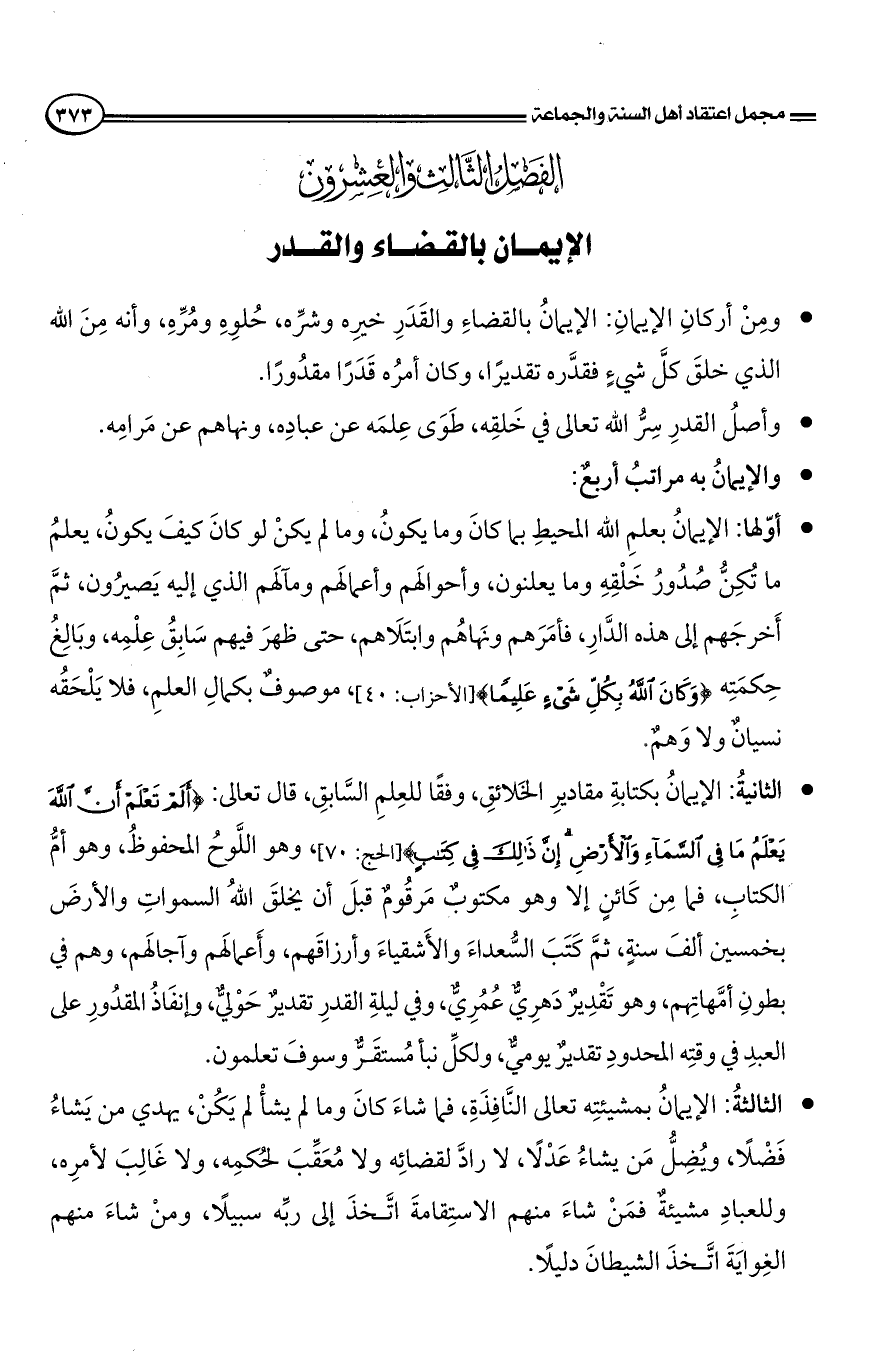 مجمل اعتقاد أهل السنة والجماعة ٣٧٣
الفَصْلُ الثَّالِثُ وَالعِشْرُونَ
الإيمـان بالقـضـاء والقـدر
• ومِنْ أركانِ الإيمانِ: الإيمانُ بالقضاءِ والقَدَرِ خيرِه وشرِّه، حُلوِهِ ومُرِّهِ، وأنه مِنَ الله
الذي خلقَ كلَّ شيءٍ فقدَّره تقديرًا، وكان أمرُه قَدَرًا مقدُورًا.
• وأصلُ القدرِ سِرُّ الله تعالى في خَلقِه، طَوَى عِلمَه عن عبادِه، ونهاهم عن مَرامِه.
• والإيمانُ به مراتبُ أربعٌ:
• أوّلها: الإيمانُ بعلمِ الله المحيطِ بما كانَ وما يكونُ، وما لم يكنْ لو كانَ كيفَ يكونُ، يعلمُ
ما تُكِنُّ صُدُورُ خَلْقِهِ وما يعلنون، وأحوالَهم وأعمالَهم ومآلَهم الذي إليه يَصيرُون، ثمَّ
أخرجَهم إلى هذه الدَّارِ، فأمَرَهم ونهاهُم وابتَلَاهم، حتى ظهرَ فيهم سَابِقُ عِلْمِه، وبَالِغُ
حِكمَتِه ﴿وَكَانَ ٱللَّهُ بِكُلِّ شَىْءٍ عَلِيمًا﴾[الأحزاب: ٤٠]، موصوفٌ بكمالِ العلمِ، فلا يَلْحَقُه
نسيانٌ ولا وَهمٌ.
• الثانيةُ: الإيمانُ بكتابةِ مقاديرِ الخلائقِ، وفقًا للعِلمِ السَّابقِ، قال تعالى: ﴿أَلَمْ تَعْلَمْ أَنَّ ٱللَّهَ
يَعْلَمُ مَا فِى ٱلسَّمَآءِ وَٱلْأَرْضِ ۗ إِنَّ ذَٰلِكَ فِى كِتَٰبٍ﴾[الحج: ٧٠]، وهو اللَّوحُ المحفوظُ، وهو أمُّ
الكتابِ، فما مِن كَائنٍ إلا وهو مكتوبٌ مَرقُومٌ قبلَ أن يخلقَ اللهُ السمواتِ والأرضَ
بخمسين ألفَ سنةٍ، ثمَّ كَتَبَ السُّعداءَ والأَشقياءَ وأرزاقَهم، وأَعمالَهم وآجالَهم، وهم في
بطونِ أمَّهاتِهم، وهو تَقْدِيرٌ دَهرِيٌّ عُمُرِيٌّ، وفي ليلةِ القدرِ تقديرٌ حَوْليٌّ، وإنفَاذُ المقدُورِ على
العبدِ في وقتِه المحدودِ تقديرٌ يوميٌّ، ولكلِّ نبأ مُستقَـرٌّ وسوفَ تعلمون.
• الثالثةُ: الإيمانُ بمشيئتِه تعالى النَّافِذَةِ، فما شاءَ كانَ وما لم يشأْ لم يَكُنْ، يهدي من يَشاءُ
فَضْلًا، ويُضِلُّ مَن يشاءُ عَدْلًا، لا رادَّ لقضائِه ولا مُعَقِّبَ لحُكمِه، ولا غَالِبَ لأمرِه،
وللعبادِ مشيئةٌ فمَنْ شاءَ منهم الاستِقامةَ اتَّـخذَ إلى ربِّه سبيلًا، ومنْ شاءَ منهم
الغِوايَةَ اتَّـخذَ الشيطانَ دليلًا.